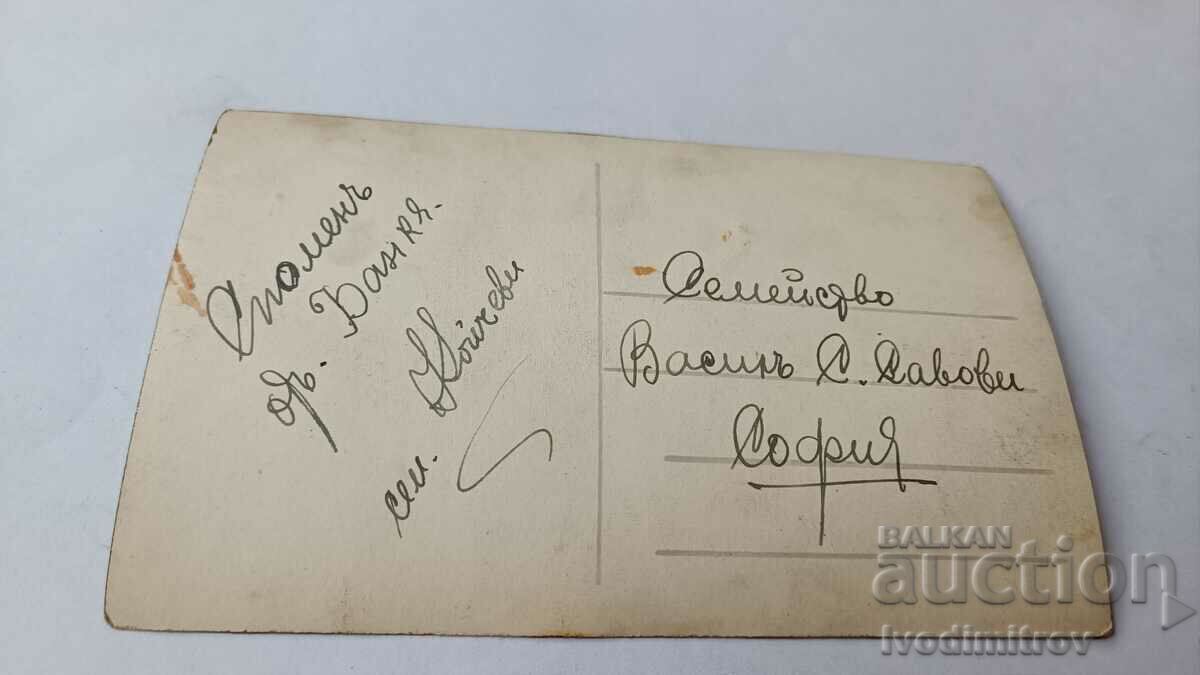 Споменъ
гр. Банкя.
сем. Койчеви
Семейство
Васинъ С. Савови
София
BALKAN
auction
Ivodimitrov